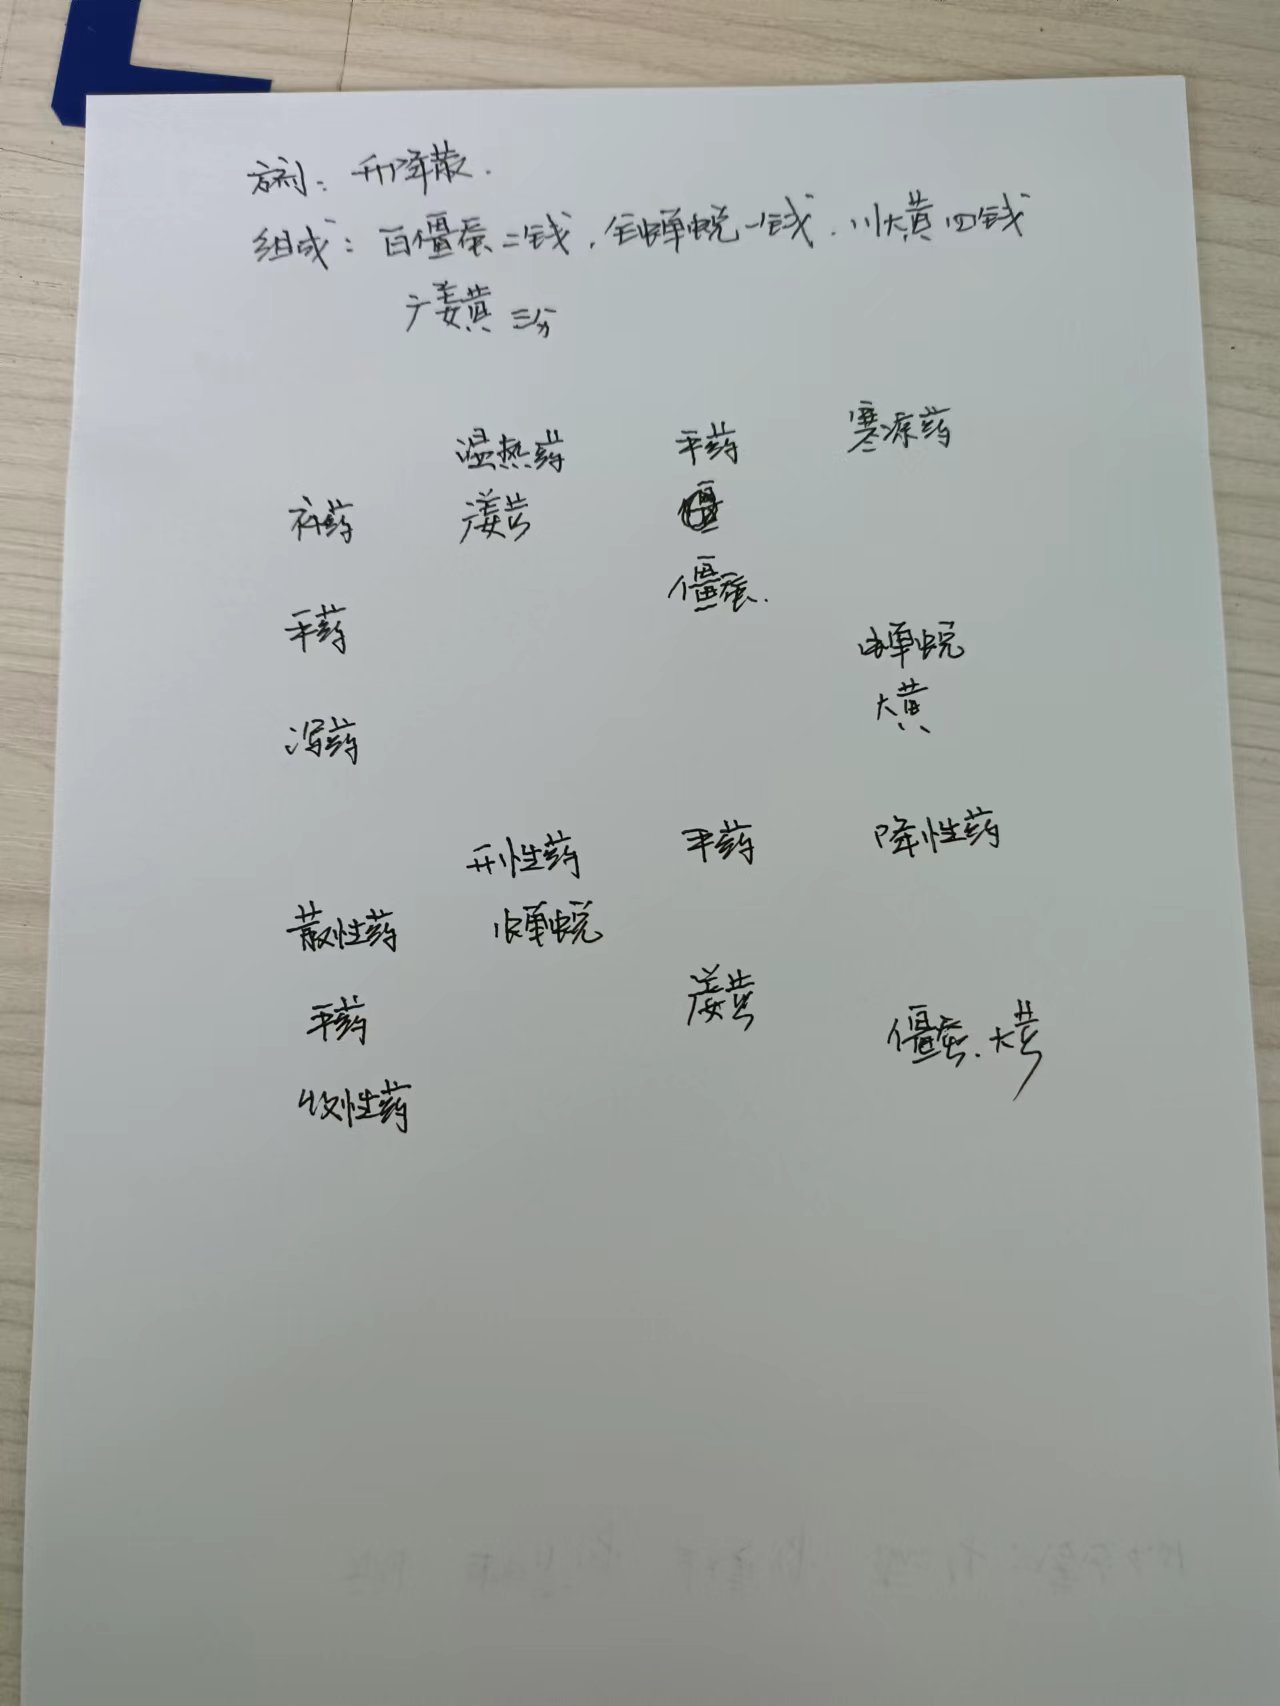 方剂：升降散.
组成：白僵蚕二钱，全蝉蜕一钱，川大黄四钱
广姜黄三分
温热药 平药 寒凉药
补药 姜黄
僵蚕.
平药
蝉蜕
大黄
泻药
升性药 平药 降性药
散性药 蝉蜕
平药 姜黄 僵蚕.大黄
收性药